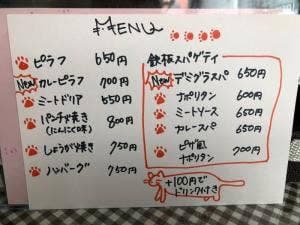 MENU
ピラフ 650円
New カレーピラフ 700円
ミートドリア 550円
パンチ焼き 800円
(にんにく味)
しょうが焼き 750円
ハンバーグ 750円
鉄板スパゲティ
New デミグラスパ 650円
ナポリタン 600円
ミートソース 650円
カレースパ 650円
ピザ風
ナポリタン 700円
+100円で
ドリンク付き